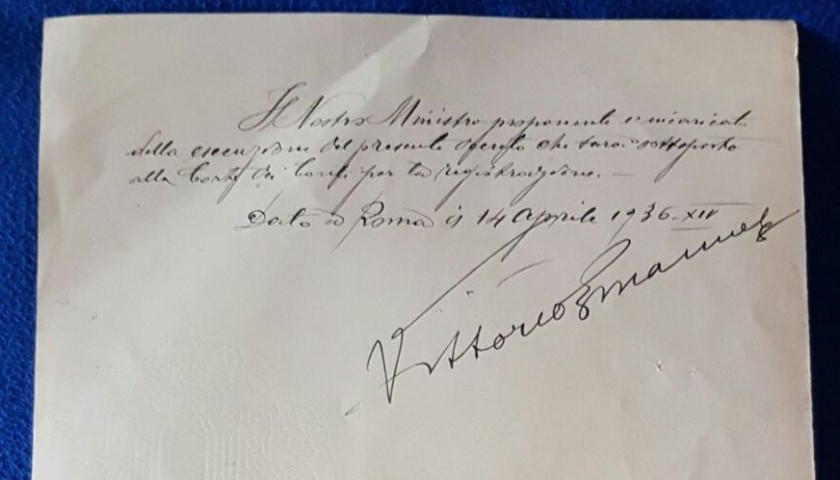 Il Nostro Ministro proponente è incaricato
della esecuzione del presente decreto che sarà sottoposto
alla Corte dei Conti per la registrazione. —
Dato a Roma il 14 aprile 1936-XIV
Vittorio Emanuele